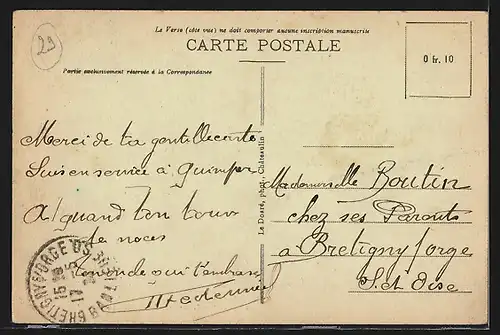 29
Le Verso (côté vue) ne doit comporter aucune inscription manuscrite
CARTE POSTALE
0 fr. 10
Partie exclusivement réservée à la Correspondance
Merci de ta gentille carte
Suis en service à Quimper
A quand ton tour
de noces
qui t'embrasse
Mademoiselle Boutin
chez ses Parents
a Bretigny s/orge
S. et Oise
Le Doaré, phot., Châteaulin
BRETIGNY S/ORGE
15
17